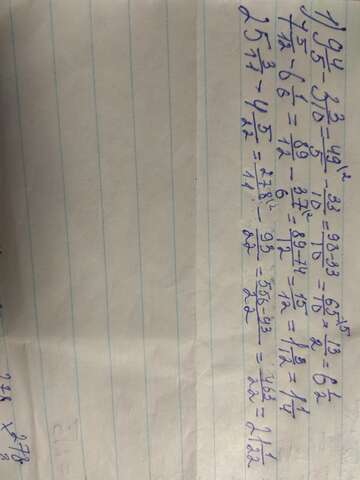 1) 9 4/5 - 3 3/10 = 49/5 \2 - 33/10 = 98-33/10 = 65/10 :5 = 13/2 = 6 1/2
7 5/12 - 6 1/6 = 89/12 - 37/6 \2 = 89-74/12 = 15/12 = 1 3/12 = 1 1/4
25 3/11 - 4 5/22 = 278/11 \2 - 93/22 = 556-93/22 = 463/22 = 21 1/22
278